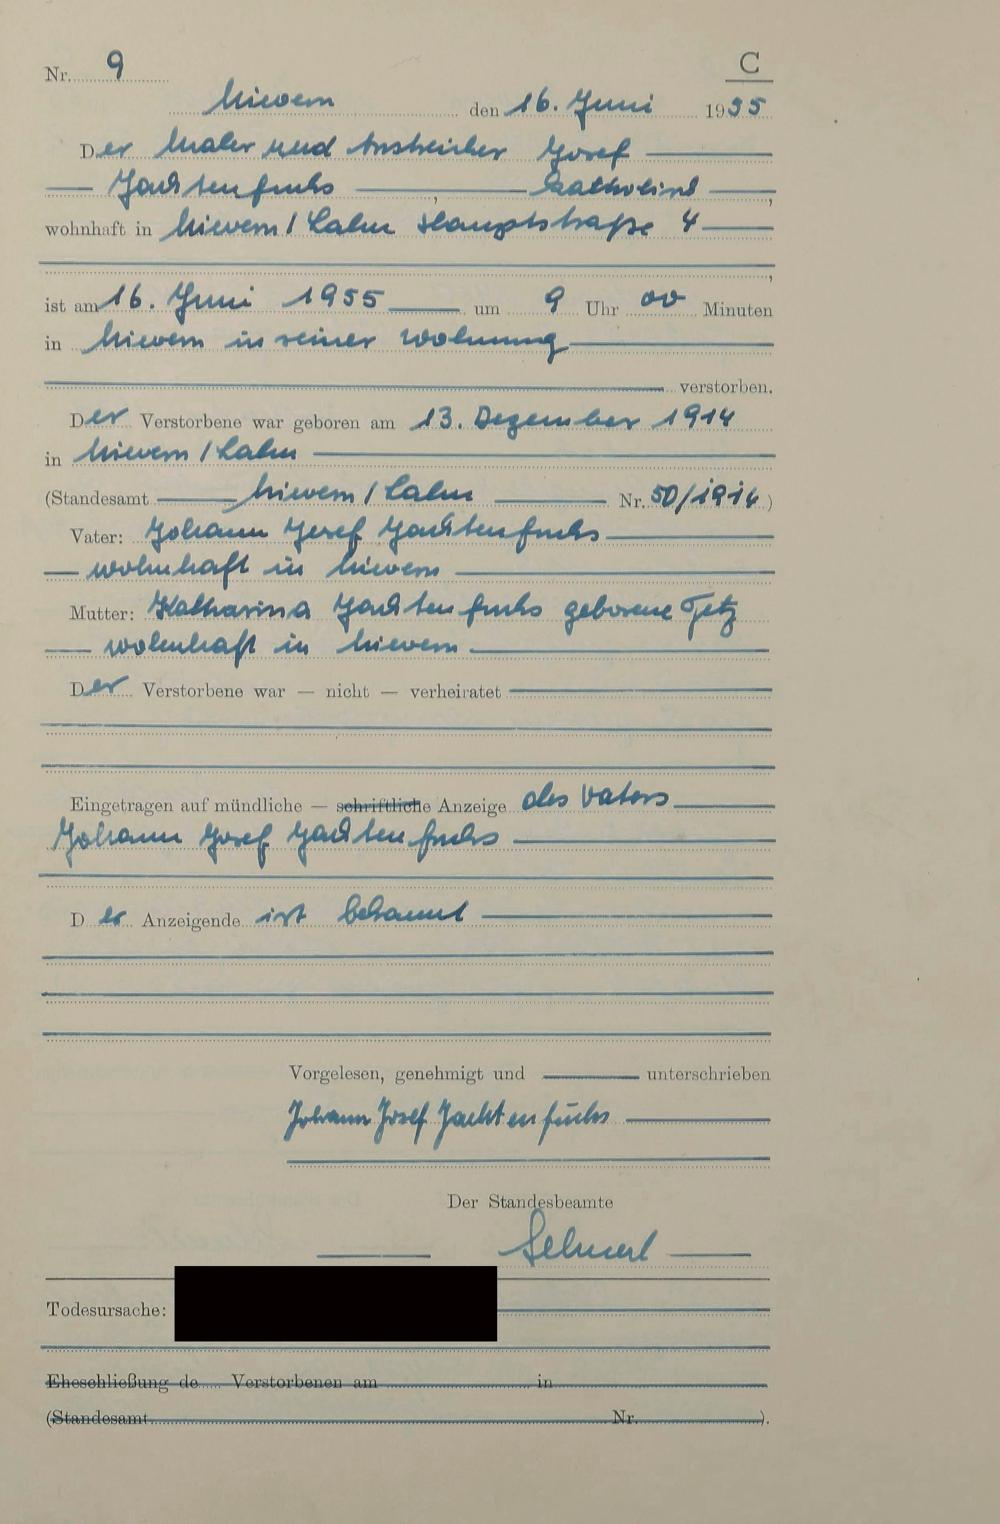 Nr. 9
C
Nievern den 16. Juni 1955
Der Maler und Anstreicher Josef
Jachtenfuchs, katholisch,
wohnhaft in Nievern/Lahn Hauptstraße 4
,
ist am 16. Juni 1955 um 9 Uhr 00 Minuten
in Nievern in seiner Wohnung
verstorben.
Der Verstorbene war geboren am 13. Dezember 1914
in Nievern/Lahn
(Standesamt Nievern/Lahn Nr. 50/1914)
Vater: Johann Josef Jachtenfuchs
wohnhaft in Nievern
Mutter: Katharina Jachtenfuchs geborene
wohnhaft in Nievern
Der Verstorbene war — nicht — verheiratet
Eingetragen auf mündliche — schriftliche Anzeige des Vaters
Johann Josef Jachtenfuchs
Der Anzeigende ist bekannt
Vorgelesen, genehmigt und unterschrieben
Johann Josef Jachtenfuchs
Der Standesbeamte
Todesursache:
Eheschließung de Verstorbenen am in
(Standesamt Nr. ).